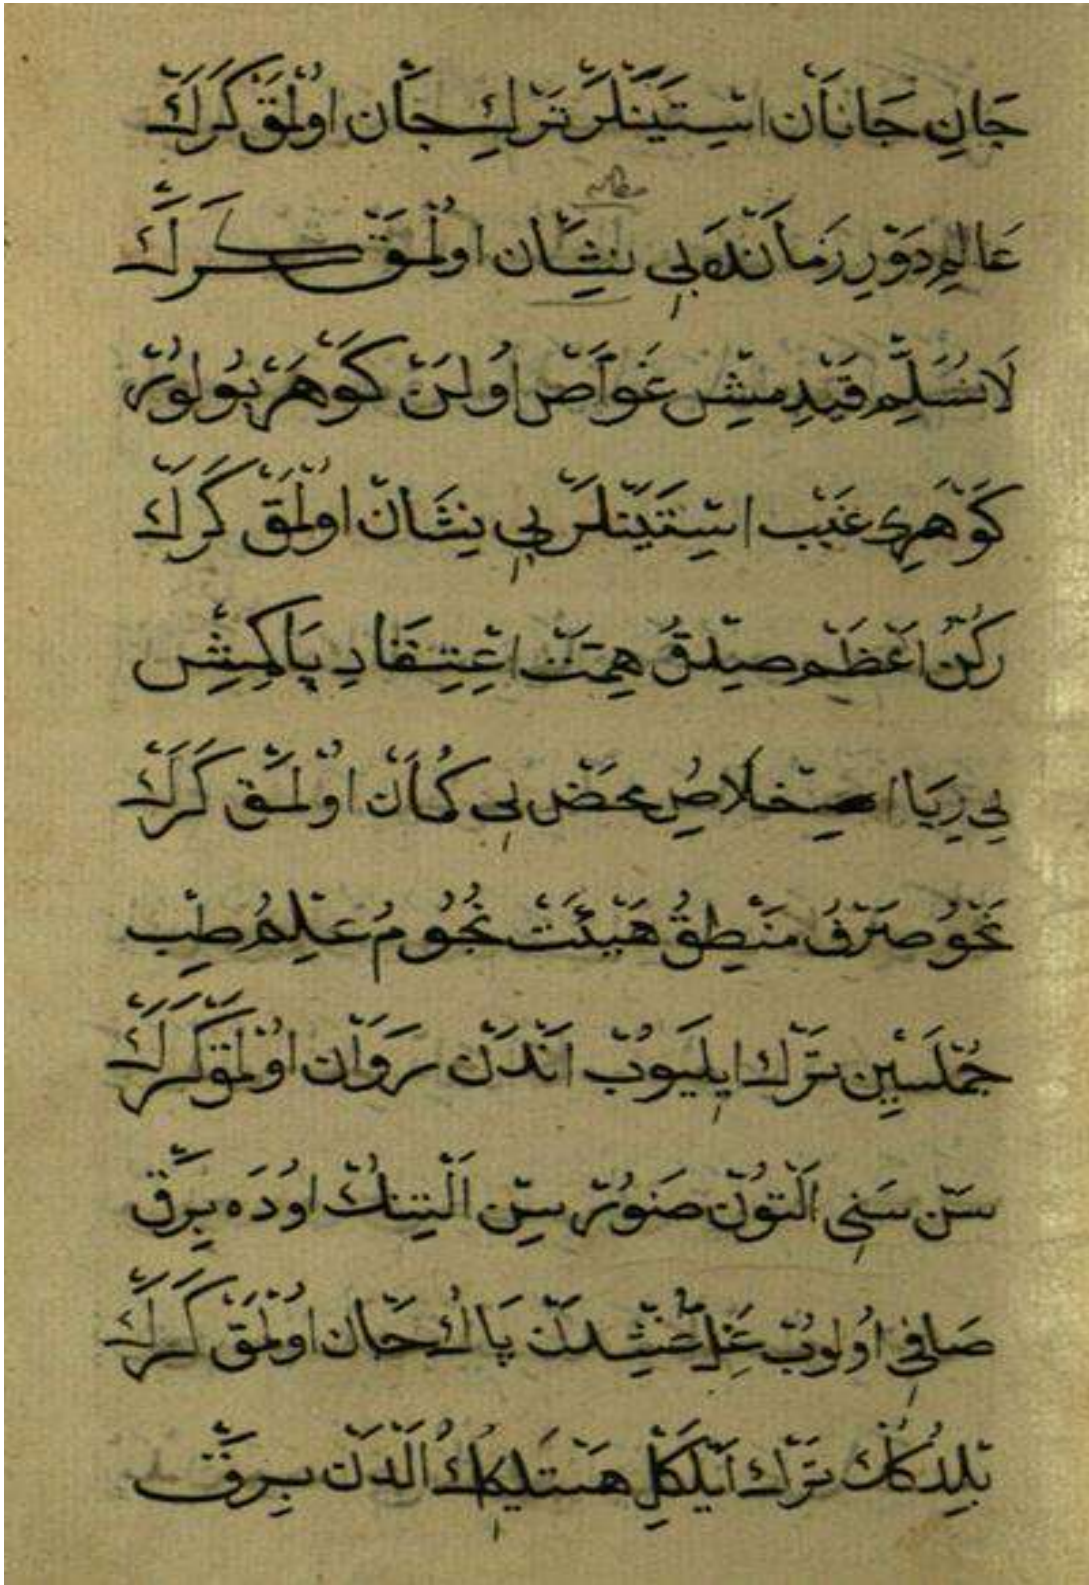 جَانِ جَانَان اسْتَيَنْلَرْ تَرْكِ جَان اوُلْمَقْ كَرَكْ
مطلب
عَالَمِ دَوْرِ زَمَانْدَه بِي نِشَان اوُلْمَقْ كَرَكْ
لَا نُسَلِّمْ قَيْدِمِشْ غَوَّاصْ اُولَنْ كَوْهَرْ بُولُورْ
كَوْهَرِ غَيْب اسْتَيَنْلَرْ بِي نِشَانْ اوُلْمَقْ كَرَكْ
رُكْنُ اَعْظَمْ صِدْقُ هِمَّتْ اِعْتِقَادِ پَاكِمِشْ
بِي رِيَا اِخْلَاصِ مَحْضْ بِي كُمَانْ اوُلْمَقْ كَرَكْ
نَحْوُ صَرْفُ مَنْطِقُ هَيْئَتْ نُجُومُ عِلْمُ طِبْ
جُمْلَسِينْ تَرْك ايليوُبْ اَنْدَنْ رَوَان اوُلْمَقْ كَرَكْ
سَنْ سَنِي اَلْتُونْ صَنُورْسِنْ اَلْتِنِكْ اوُدَه بِرَقْ
صَافِي اُولُوبْ غِلُّ غِشْدَنْ پَاكُ جَان اوُلْمَقْ كَرَكْ
بِلْدُكِكْ تَرْك اَيْلَكِلْ هَسْتَلِكِكْ اَلْدَنْ بِرَقْ